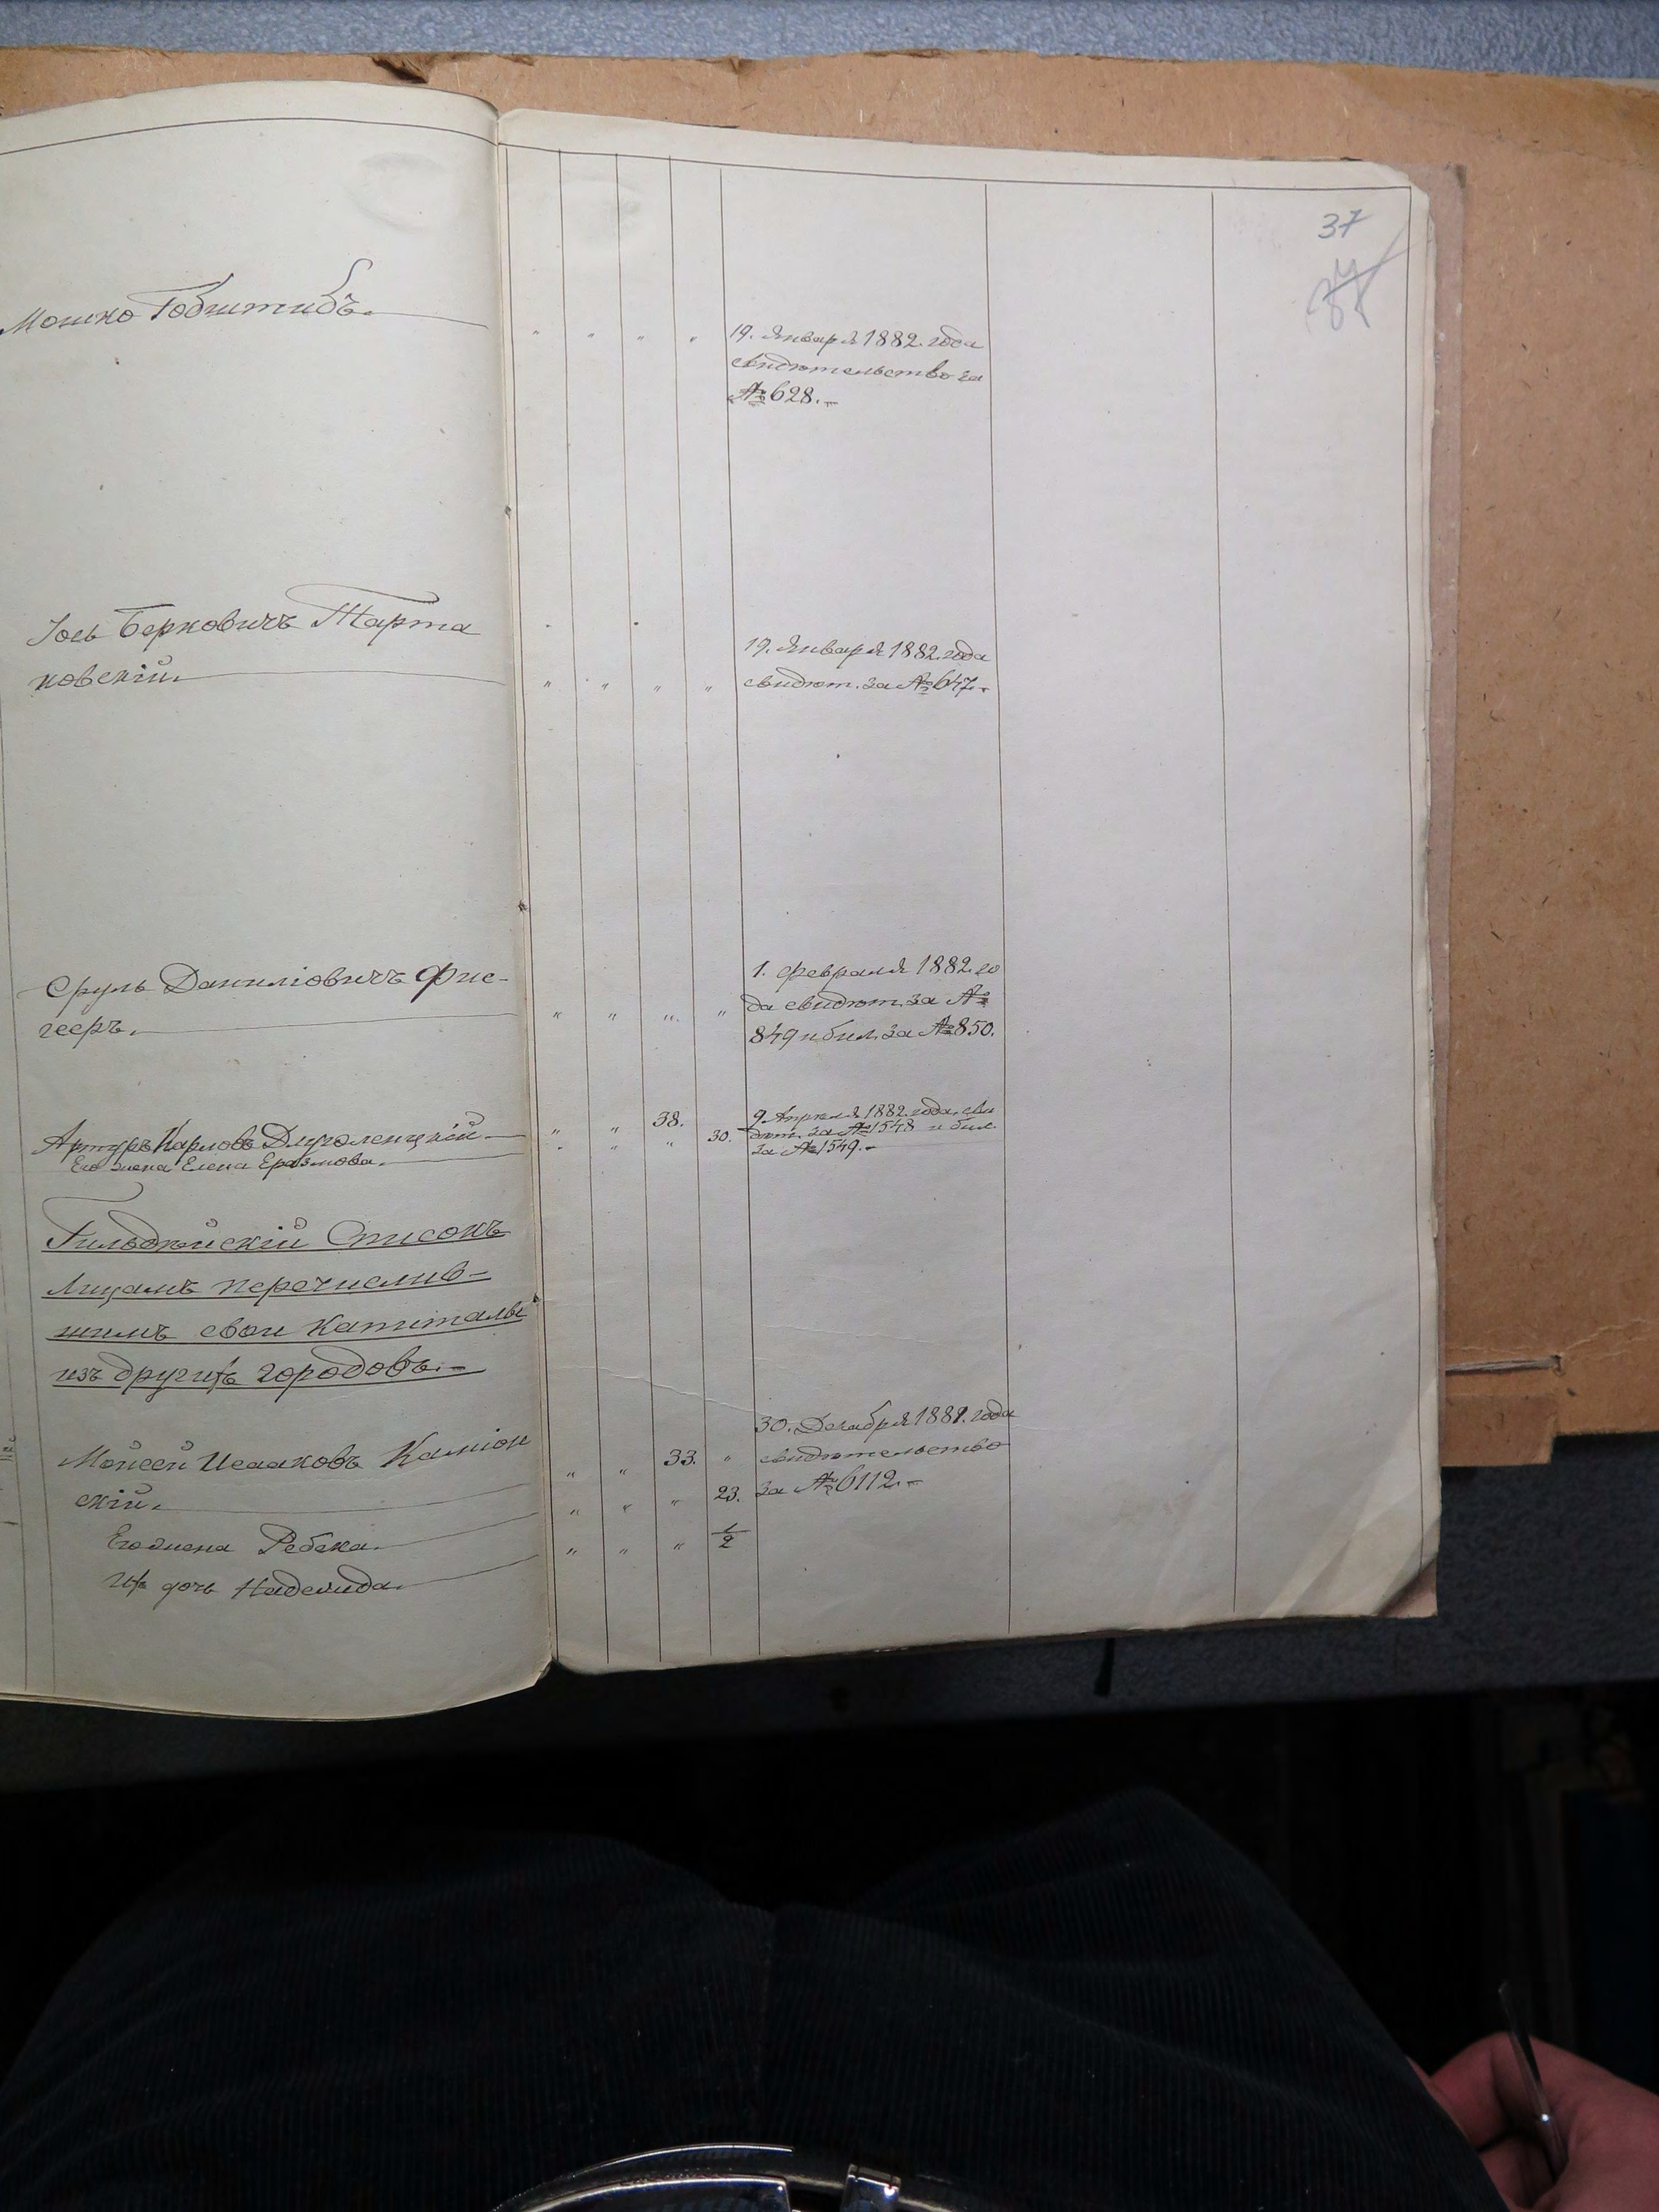 37
Мошко Гобштибъ.
19. Января 1882. года
свидѣтельство за
№ 628.-
Іось Берковичъ Тарта
ковскій.
19. Января 1882. года
свидѣт. за № 647.-
Сруль Даниліовичъ Фис-
гееръ.
1. Февраля 1882. го
да свидѣт. за №
849 и бил. за № 850.
Артуръ Карловъ Длуголенцкій
38.
30.
Его жена Елена Еразмова.
9. Апрѣля 1882. года. сви
дѣт. за № 1548 и бил.
за № 1549.-
Гильдѣйскій Списокъ
Лицамъ перечислив-
шимъ свои Капиталы
изъ другихъ городовъ.-
Мойсей Исааковъ Каміон
скій.
33.
30. Декабря 1881. года
свидѣтельство
за № 6112.-
Его жена Ребека.
23.
ихъ дочь Надежида.
1/2